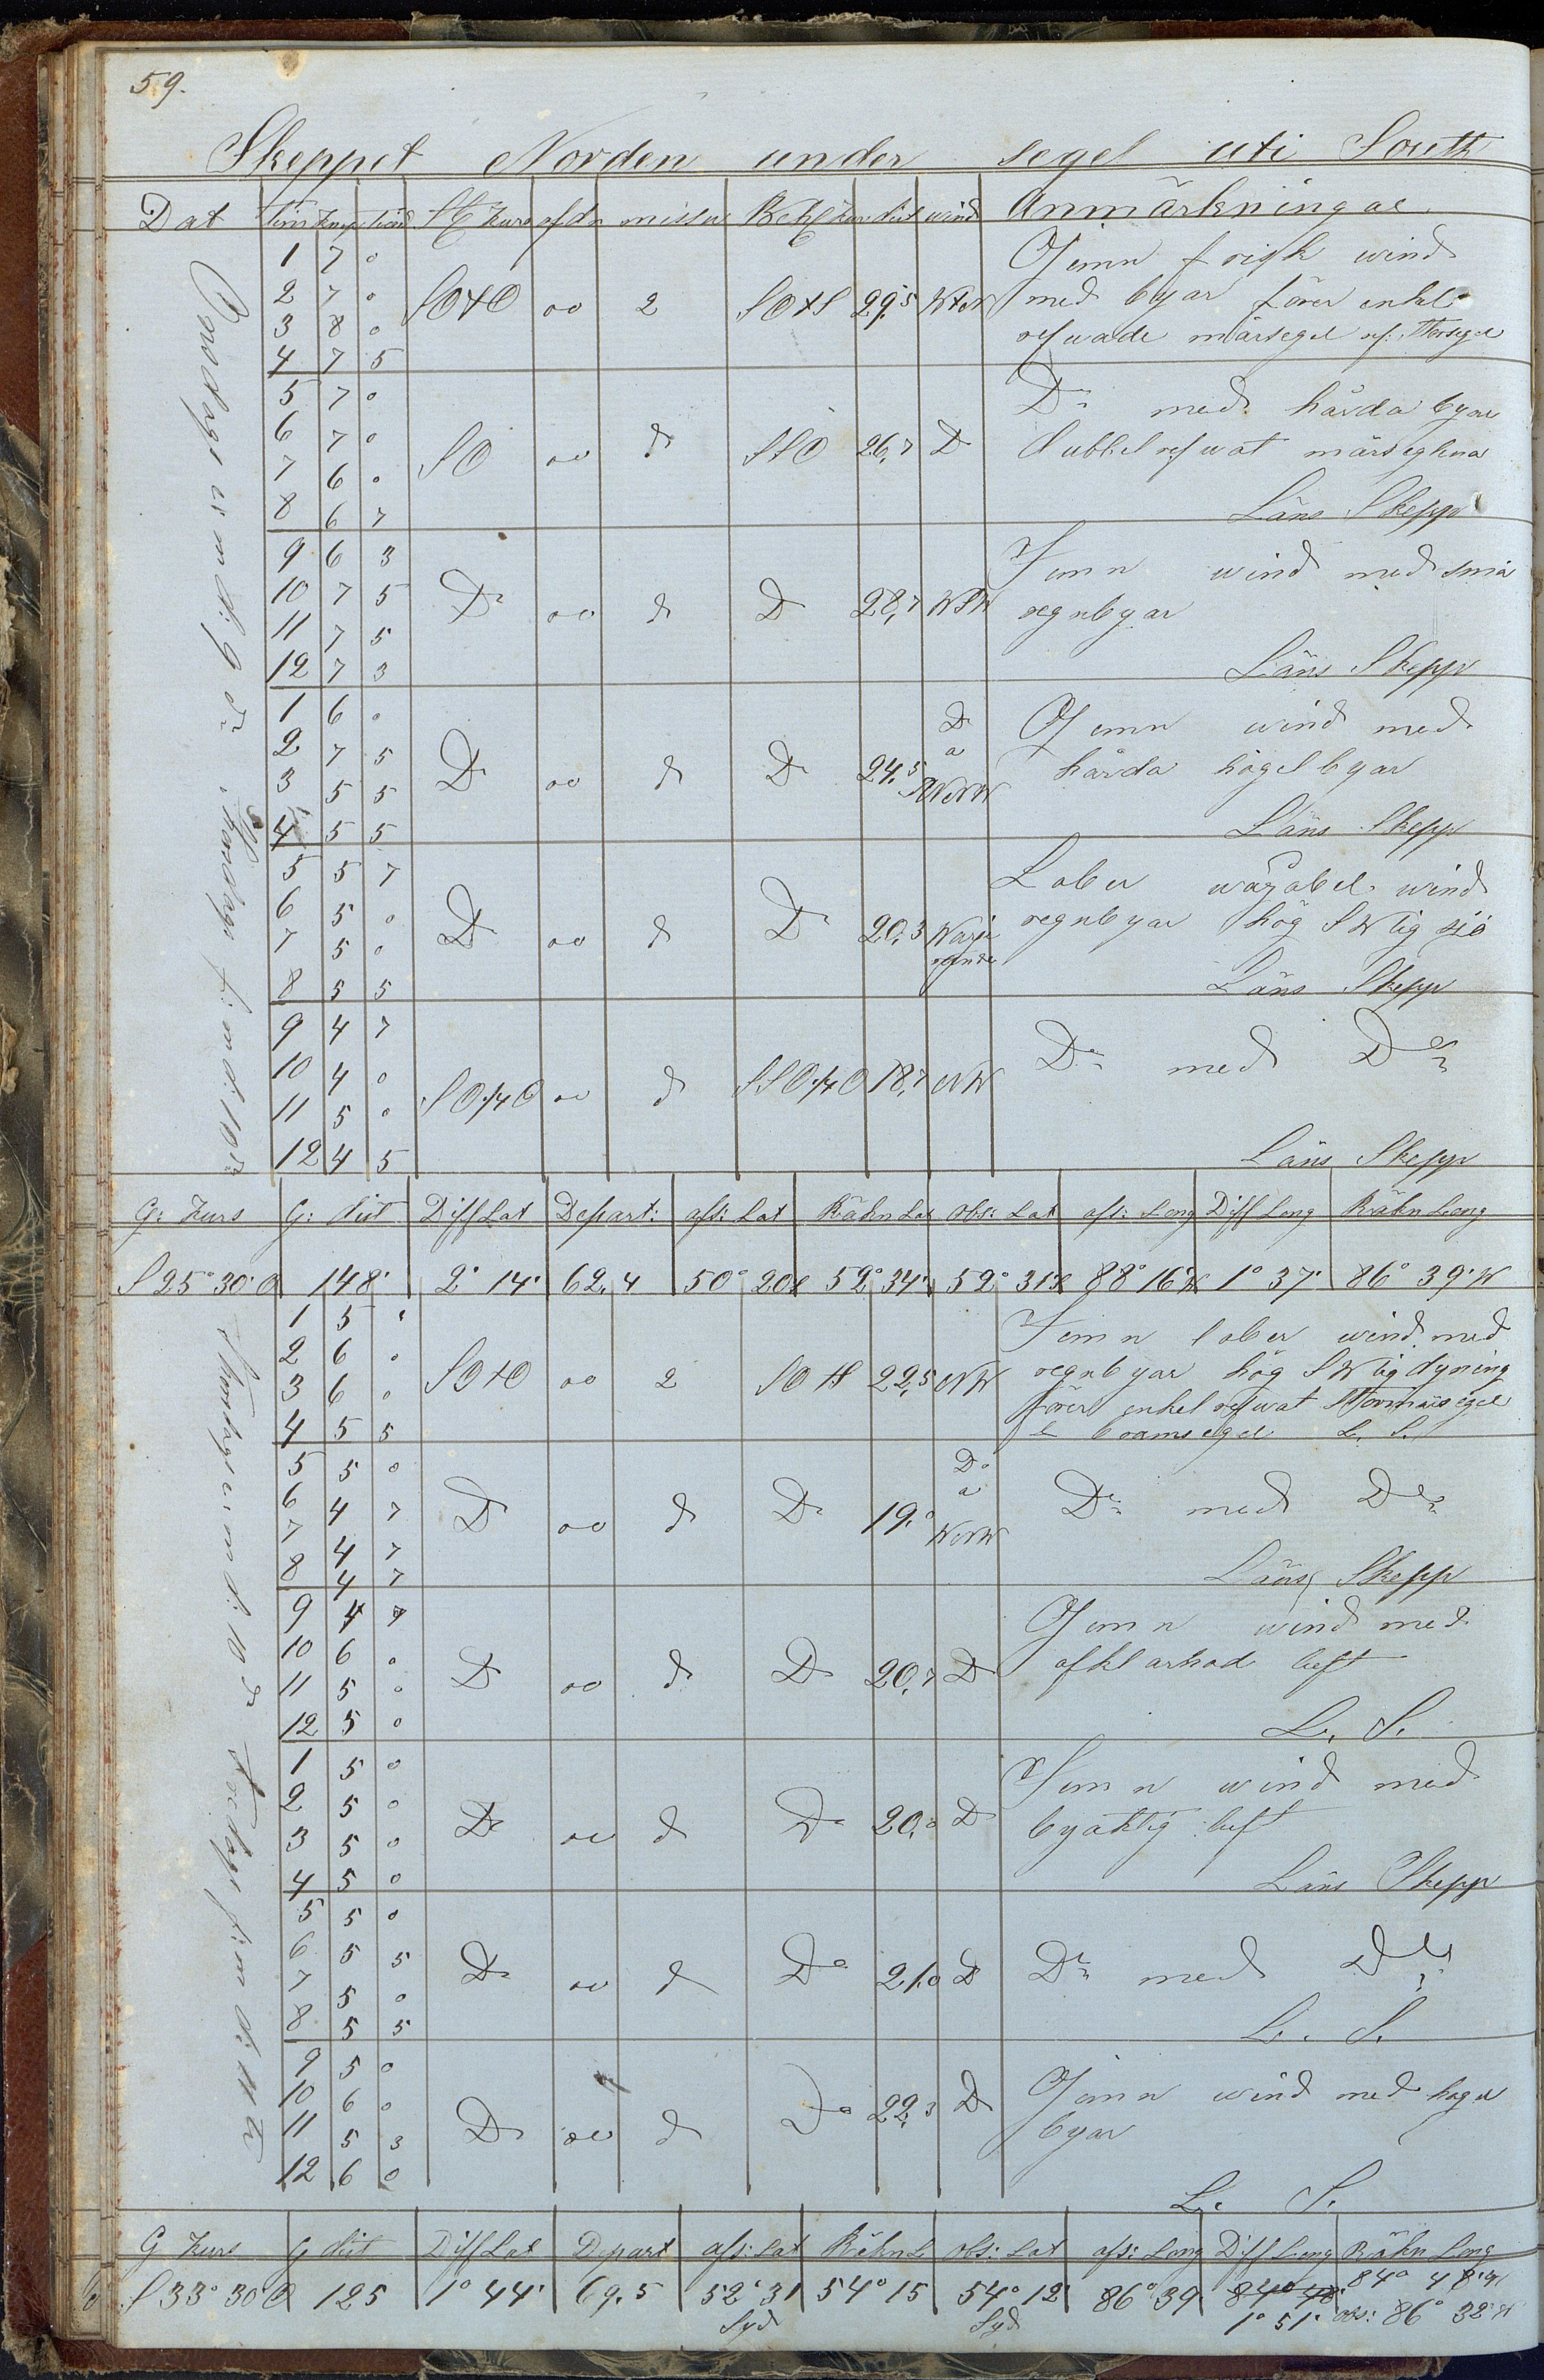 59.
Skeppet Norden under segel uti South
Dat Tim Knop St Kurs afdr missv Behl Kurs dist wind Anmärkningar
1 7 0 Jemn frisk wind
2 7 0 SOtO oo 2 SOtS 29,5 WtNW med byar förer enkel
3 8 0 refwade märsegel
4 7 5
5 7 0 Do med hårda byar
6 7 0 SO oo d SSO 26,7 D dubbel refwat märseglena
7 6 0
8 6 7 Läns Skepp
9 6 3 Jemn wind med små
10 7 5 Do oo d D 28,7 WSW regnbyar
11 7 5
12 7 3 Läns Skepp
1 6 0 Do Jemn wind med
2 7 5 D oo d D 24,5 a hårda högelbyar
3 5 5 WNW
4 5 5 Läns Skepp
5 5 7 Laber wind
6 5 0 D oo d D 20,3 Varie regnbyar hög SWlig sjö
7 5 0 rende
8 5 5 Läns Skepp
9 4 7 Do med Do
10 4 0
11 5 0 SO¼O oo d SSO¼O 18,7 NW
12 4 5 Läns Skepp
Thorsdagen f: m d: 10de
G: Kurs G: dist Diff Lat Depart: afs: Lat Räkn Lat obs: Lat afs: Long Diff Long Räkn Long
S 25° 30' O 148' 2° 14' 62,4 50° 20 S 52° 34' 52° 31' S 88° 16' W 1° 37' 86° 39' W
1 5 0 Jemn laber wind med
2 6 0 SOtO oo 2 SOtS 22,5 NW regnbyar hög SWlig dyning
3 6 0 förer enkel refwat Stormärsegel
4 5 5 & bramsegel L. S.
5 5 0 Do
6 4 7 D oo d D 19,0 a Do med Do
7 4 7 WNW
8 4 7 Läns Skepp
9 4 7 Jemn wind med
10 6 0 D oo d D 20,7 D afklarkad luft
11 5 0
12 5 0 L. S.
1 5 0 Jemn wind med
2 5 0 D oo d Do 20,0 D byaktig luft
3 5 0
4 5 0 Läns Skepp
5 5 0
6 5 5 D oo d Do 21,0 D Do med Do
7 5 0
8 5 5 L. S.
9 5 0 Jemn wind med hagel
10 6 0 D oo d Do 22,3 D byar
11 5 3
12 6 0 L. S.
G Kurs G dist Diff Lat Depart afs: Lat Räkn L obs: Lat afs: Long Diff Long Räkn Long
S 33° 30' O 125 1° 44' 69,5 52° 31 54° 15 54° 12' 86° 39' 84° 48' 84° 48' W
Syd Syd 1° 51' obs: 86° 32' W